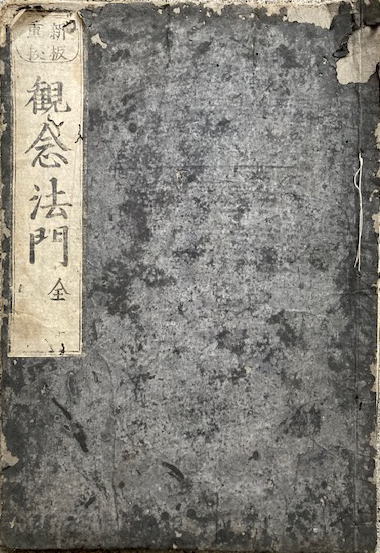 新板
重校
観念法門 全